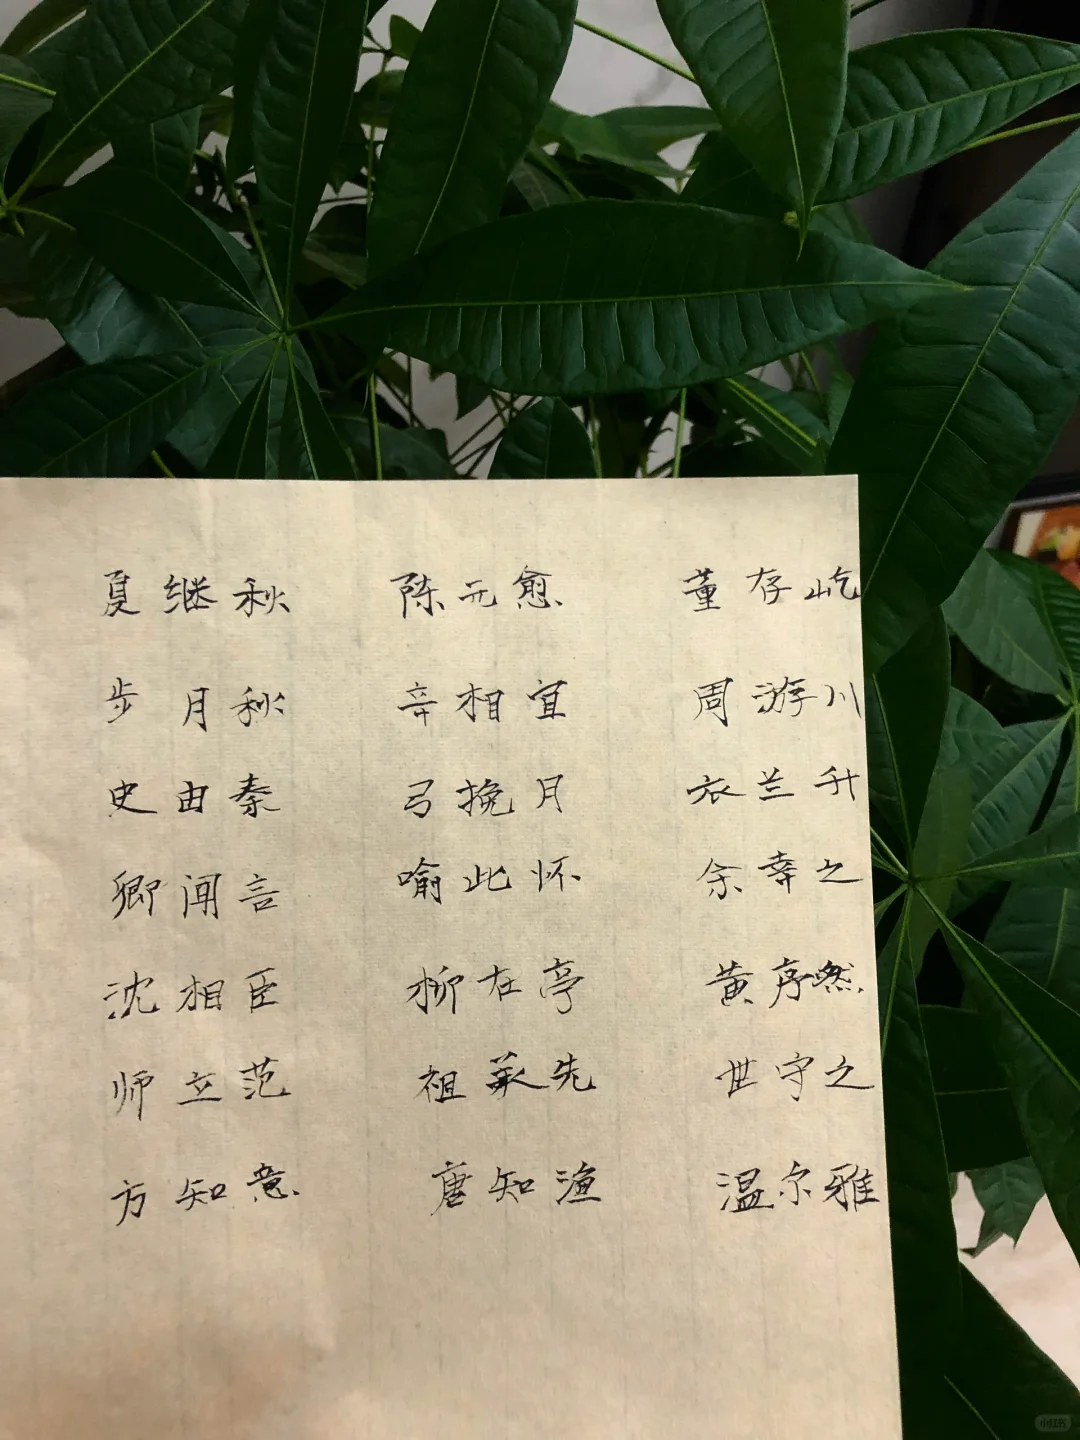 夏继秋 陈元愈 董存屹
步月秋 辛相宜 周游川
史由秦 弓挽月 衣兰升
卿闻言 喻此怀 余幸之
沈相臣 柳在亭 黄序燃
师立范 祖承先 世守之
方知意 唐知渔 温尔雅
小红书